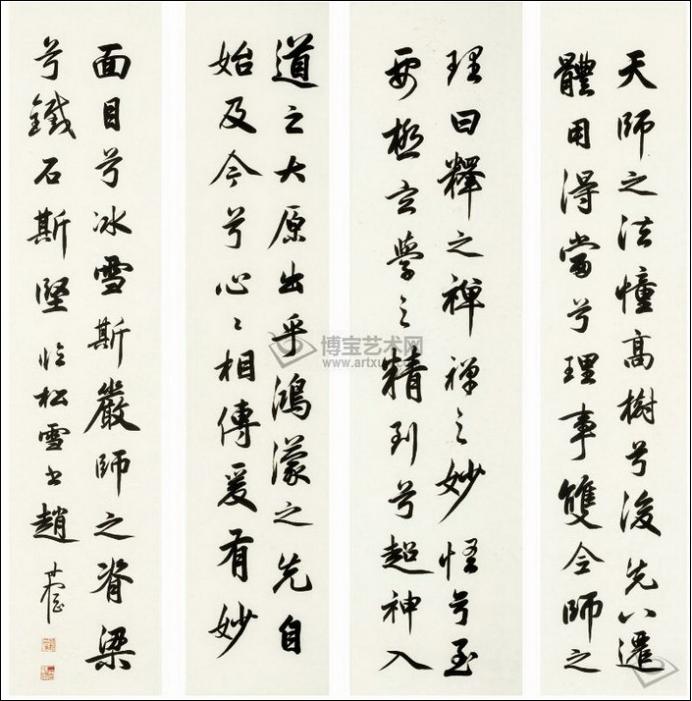 天師之法幢高樹兮後先以遷
體用得當兮理事雙全師之
理曰釋之禪禪之妙怪兮至
要極玄學之精到兮超神入
道之大原出乎鴻濛之先自
始及今兮心〻相傳爰有妙
面目兮冰雪斯嚴師之脊梁
兮鐵石斯堅 臨松雪書 趙
博宝艺术网